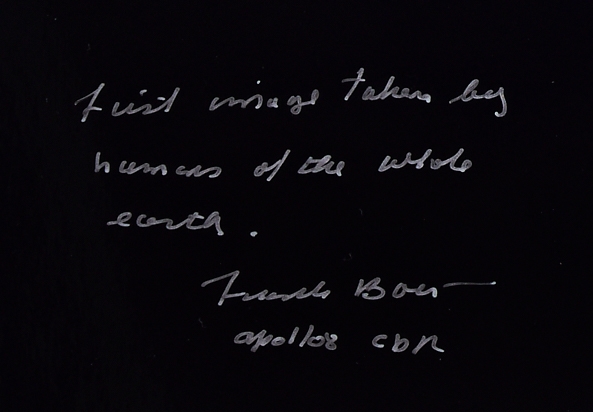 First image taken by
humans of the whole
earth.
Frank Borman
apollo8 CDR